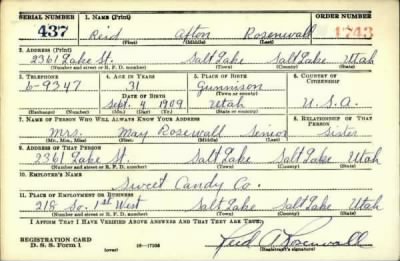 SERIAL NUMBER 1. NAME (Print) ORDER NUMBER
437 Reid Afton Rosenwall 1743
(First) (Middle) (Last)
2. ADDRESS (Print)
2361 Lake St. Salt Lake Salt Lake Utah
(Number and street or R. F. D. number) (Town) (County) (State)
3. TELEPHONE 4. AGE IN YEARS 5. PLACE OF BIRTH 6. COUNTRY OF CITIZENSHIP
6-9347 31 Gunnison
DATE OF BIRTH (Town or county)
Sept. 4 1909 Utah U.S.A.
(Exchange) (Number) (Mo.) (Day) (Yr.) (State or country)
7. NAME OF PERSON WHO WILL ALWAYS KNOW YOUR ADDRESS 8. RELATIONSHIP OF THAT PERSON
Mrs. May Rosewall Senior Sister
(Mr., Mrs., Miss) (First) (Middle) (Last)
9. ADDRESS OF THAT PERSON
2361 Lake St. Salt Lake Salt Lake Utah
(Number and street or R. F. D. number) (Town) (County) (State)
10. EMPLOYER'S NAME
Sweet Candy Co.
11. PLACE OF EMPLOYMENT OR BUSINESS
218 So. 1st West Salt Lake Salt Lake Utah
(Number and street or R. F. D. number) (Town) (County) (State)
I AFFIRM THAT I HAVE VERIFIED ABOVE ANSWERS AND THAT THEY ARE TRUE.
REGISTRATION CARD
D. S. S. Form 1 (over) 16—17105 Reid A Rosenwall
(Registrant's signature)